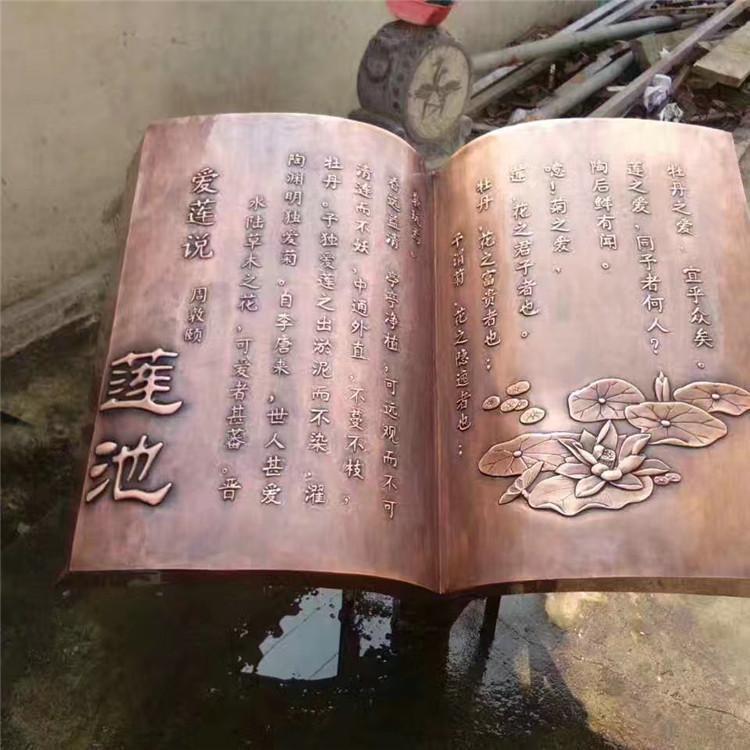 莲池
爱莲说
周敦颐
水陆草木之花，可爱者甚蕃。晋
陶渊明独爱菊。自李唐来，世人甚爱
牡丹。予独爱莲之出淤泥而不染，濯
清涟而不妖，中通外直，不蔓不枝，
香远益清，亭亭净植，可远观而不可
亵玩焉。
予谓菊，花之隐逸者也；
牡丹，花之富贵者也；
莲，花之君子者也。
噫！菊之爱，
陶后鲜有闻。
莲之爱，同予者何人？
牡丹之爱，宜乎众矣。